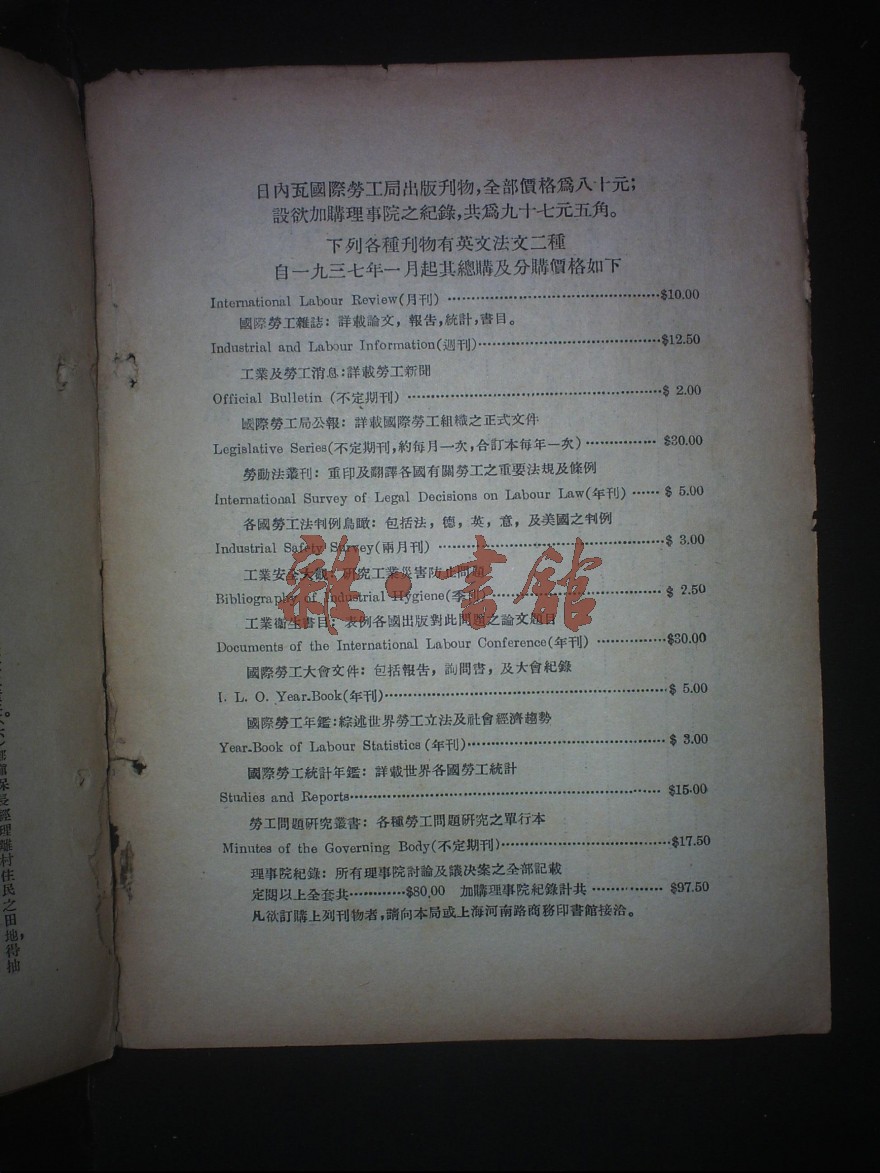 日內瓦國際勞工局出版刋物,全部價格爲八十元;
設欲加購理事院之紀錄,共爲九十七元五角。
下列各種刋物有英文法文二種
自一九三七年一月起其總購及分購價格如下
International Labour Review(月刋) ··············$10.00
國際勞工雜誌: 詳載論文, 報告,統計,書目。
Industrial and Labour Information(週刋)··············$12.50
工業及勞工消息:詳載勞工新聞
Official Bulletin (不定期刋) ··············$ 2.00
國際勞工局公報: 詳載國際勞工組織之正式文件
Legislative Series(不定期刋,約每月一次,合訂本每年一次) ·············· $30.00
勞動法叢刋: 重印及翻譯各國有關勞工之重要法規及條例
International Survey of Legal Decisions on Labour Law(年刋) ······ $ 5.00
各國勞工法判例鳥瞰: 包括法, 德, 英, 意, 及美國之判例
Industrial Safety Survey(兩月刋) ··············$ 3.00
工業安全大觀: 研究工業災害防止問題
Bibliography of Industrial Hygiene(季刋)·············· $ 2.50
工業衞生書目: 表例各國出版對此問題之論文題目
Documents of the International Labour Conference(年刋) ··············$30.00
國際勞工大會文件: 包括報告, 詢問書, 及大會紀錄
I. L. O. Year-Book(年刋)··············$ 5.00
國際勞工年鑑:綜述世界勞工立法及社會經濟趨勢
Year-Book of Labour Statistics (年刋)·············· $ 3.00
國際勞工統計年鑑: 詳載世界各國勞工統計
Studies and Reports·············· $15.00
勞工問題研究叢書: 各種勞工問題研究之單行本
Minutes of the Governing Body(不定期刋)··············$17.50
理事院紀錄: 所有理事院討論及議決案之全部記載
定閱以上全套共············$80.00 加購理事院紀錄計共 ·············· $97.50
凡欲訂購上列刋物者,請向本局或上海河南路商務印書館接洽。
雜·書館
保長經理離村住民之田地,得抽